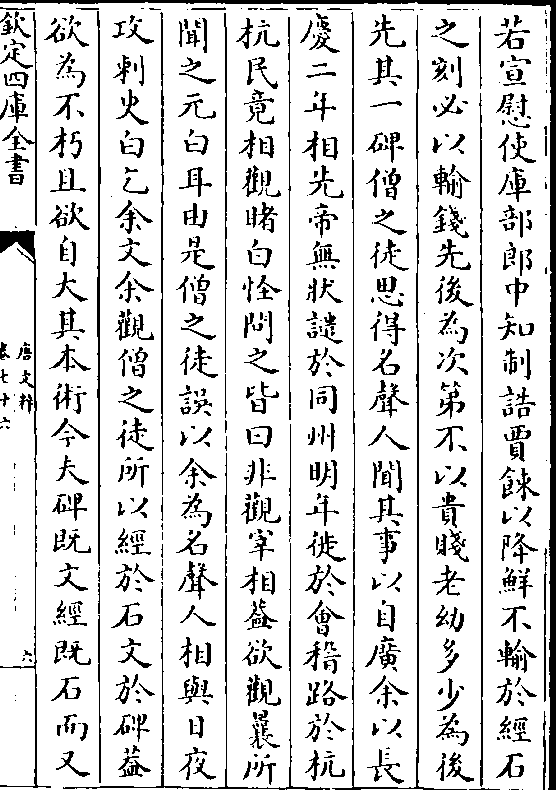 若宣慰使庫部郎中知制誥賈餗以降鮮不輸於經石
之刻必以輸錢先後為次第不以貴賤老幼多少為後
先其一碑僧之徒思得名聲人聞其事以自廣余以長
慶二年相先帝無狀譴於同州明年徙於會稽路於杭
杭民竟相觀睹白怪問之皆曰非觀宰相葢欲觀曩所
聞之元白耳由是僧之徒誤以余為名聲人相與日夜
攻刺史白乞余文余觀僧之徒所以經於石文於碑葢
欲為不朽且欲自大其本術今夫碑既文經既石而又
欽定四庫全書
唐文粹
卷七十六
六